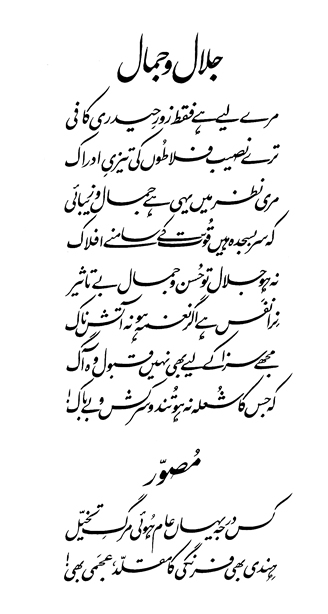 جلال و جمال
مرے لیے ہے فقط زورِ حیدری کافی
ترے نصیب فلاطوں کی تیزیِ ادراک
مری نظر میں یہی ہے جمال و زیبائی
کہ سر بسجدہ ہیں قوت کے سامنے افلاک
نہ ہو جلال تو حُسن و جمال بے تاثیر
نِرا نفس ہے اگر نغمہ ہو نہ آتش ناک
مجھے سزا کے لیے بھی نہیں قبول وہ آگ
کہ جس کا شُعلہ نہ ہو تُند و سرکش و بے باک!
مُصوّر
کس درجہ یہاں عام ہُوئی مرگِ تخیّل
ہِندی بھی فرنگی کا مقلّد، عجَمی بھی!